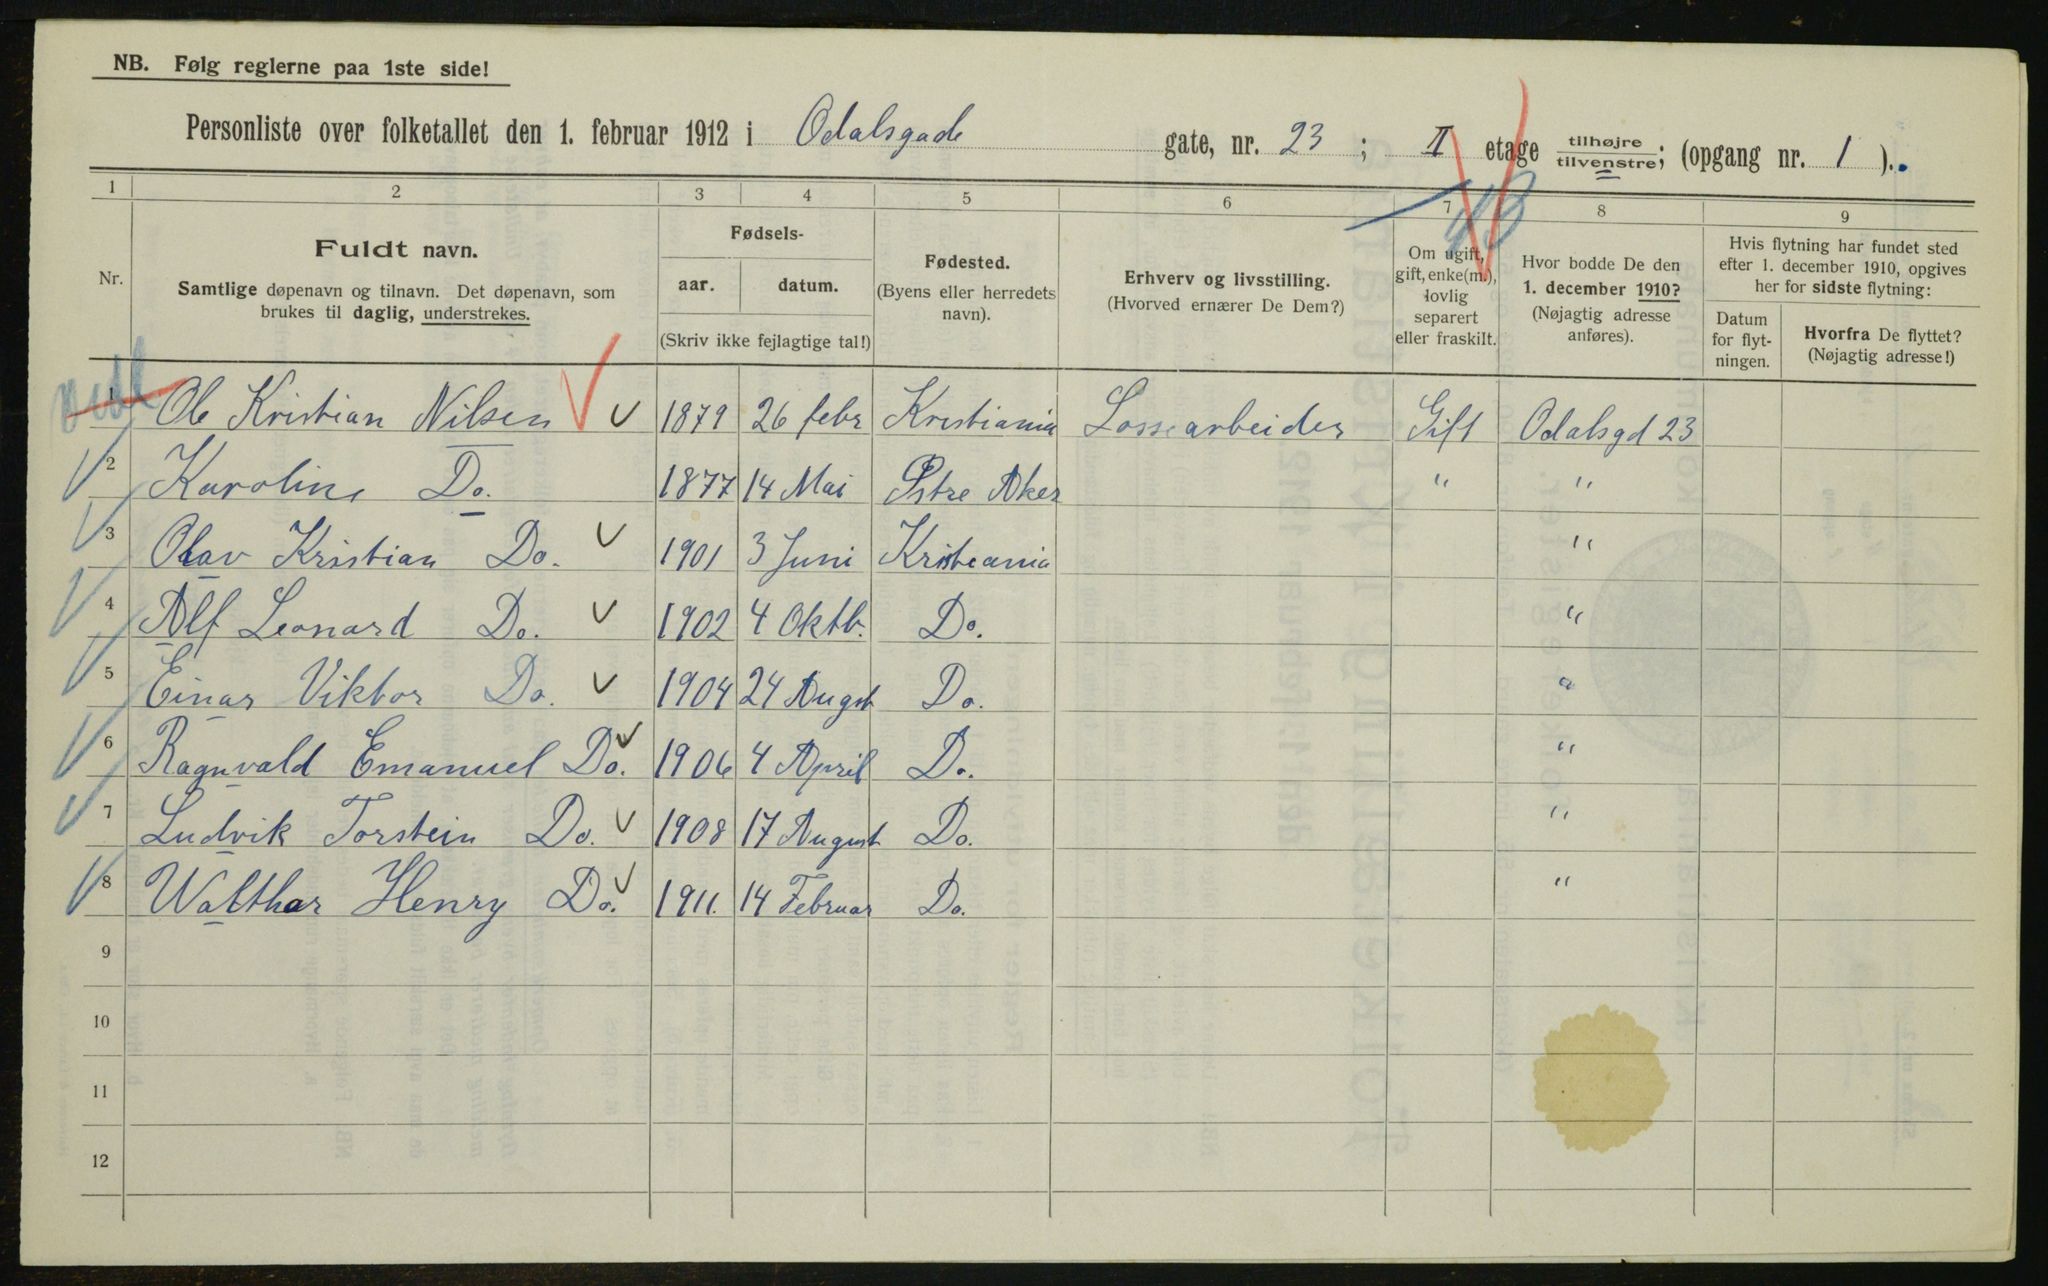 NB. Følg reglerne paa 1ste side!
Personliste over folketallet den 1. februar 1912 i Odalsgade gate, nr. 23 ; II etage tilhøjre/tilvenstre; (opgang nr. 1 ).
1 2 3 4 5 6 7 8 9
Nr.
Fuldt navn.
Samtlige døpenavn og tilnavn. Det døpenavn, som
brukes til daglig, understrekes.
Fødsels-
aar. datum.
(Skriv ikke fejlagtige tal!)
Fødested.
(Byens eller herredets
navn).
Erhverv og livsstilling.
(Hvorved ernærer De Dem?)
Om ugift,
gift, enke(m.),
lovlig
separert
eller fraskilt.
Hvor bodde De den
1. december 1910?
(Nøjagtig adresse
anføres).
Hvis flytning har fundet sted
efter 1. december 1910, opgives
her for sidste flytning:
Datum
for flyt-
ningen.
Hvorfra De flyttet?
(Nøjagtig adresse!)
1 Ole Kristian Nilsen 1879 26 febr Kristiania Lossearbeider Gift Odalsgd 23
2 Karoline Do. 1877 14 Mai Østre Aker " "
3 Olav Kristian Do. 1901 3 Juni Kristiania "
4 Alf Leonard Do. 1902 4 Oktb. Do. "
5 Einar Viktor Do. 1904 24 Augst Do. "
6 Ragnvald Emanuel Do. 1906 4 April Do. "
7 Ludvik Torstein Do. 1908 17 August Do. "
8 Walthar Henry Do. 1911. 14 Februar Do. "
9
10
11
12